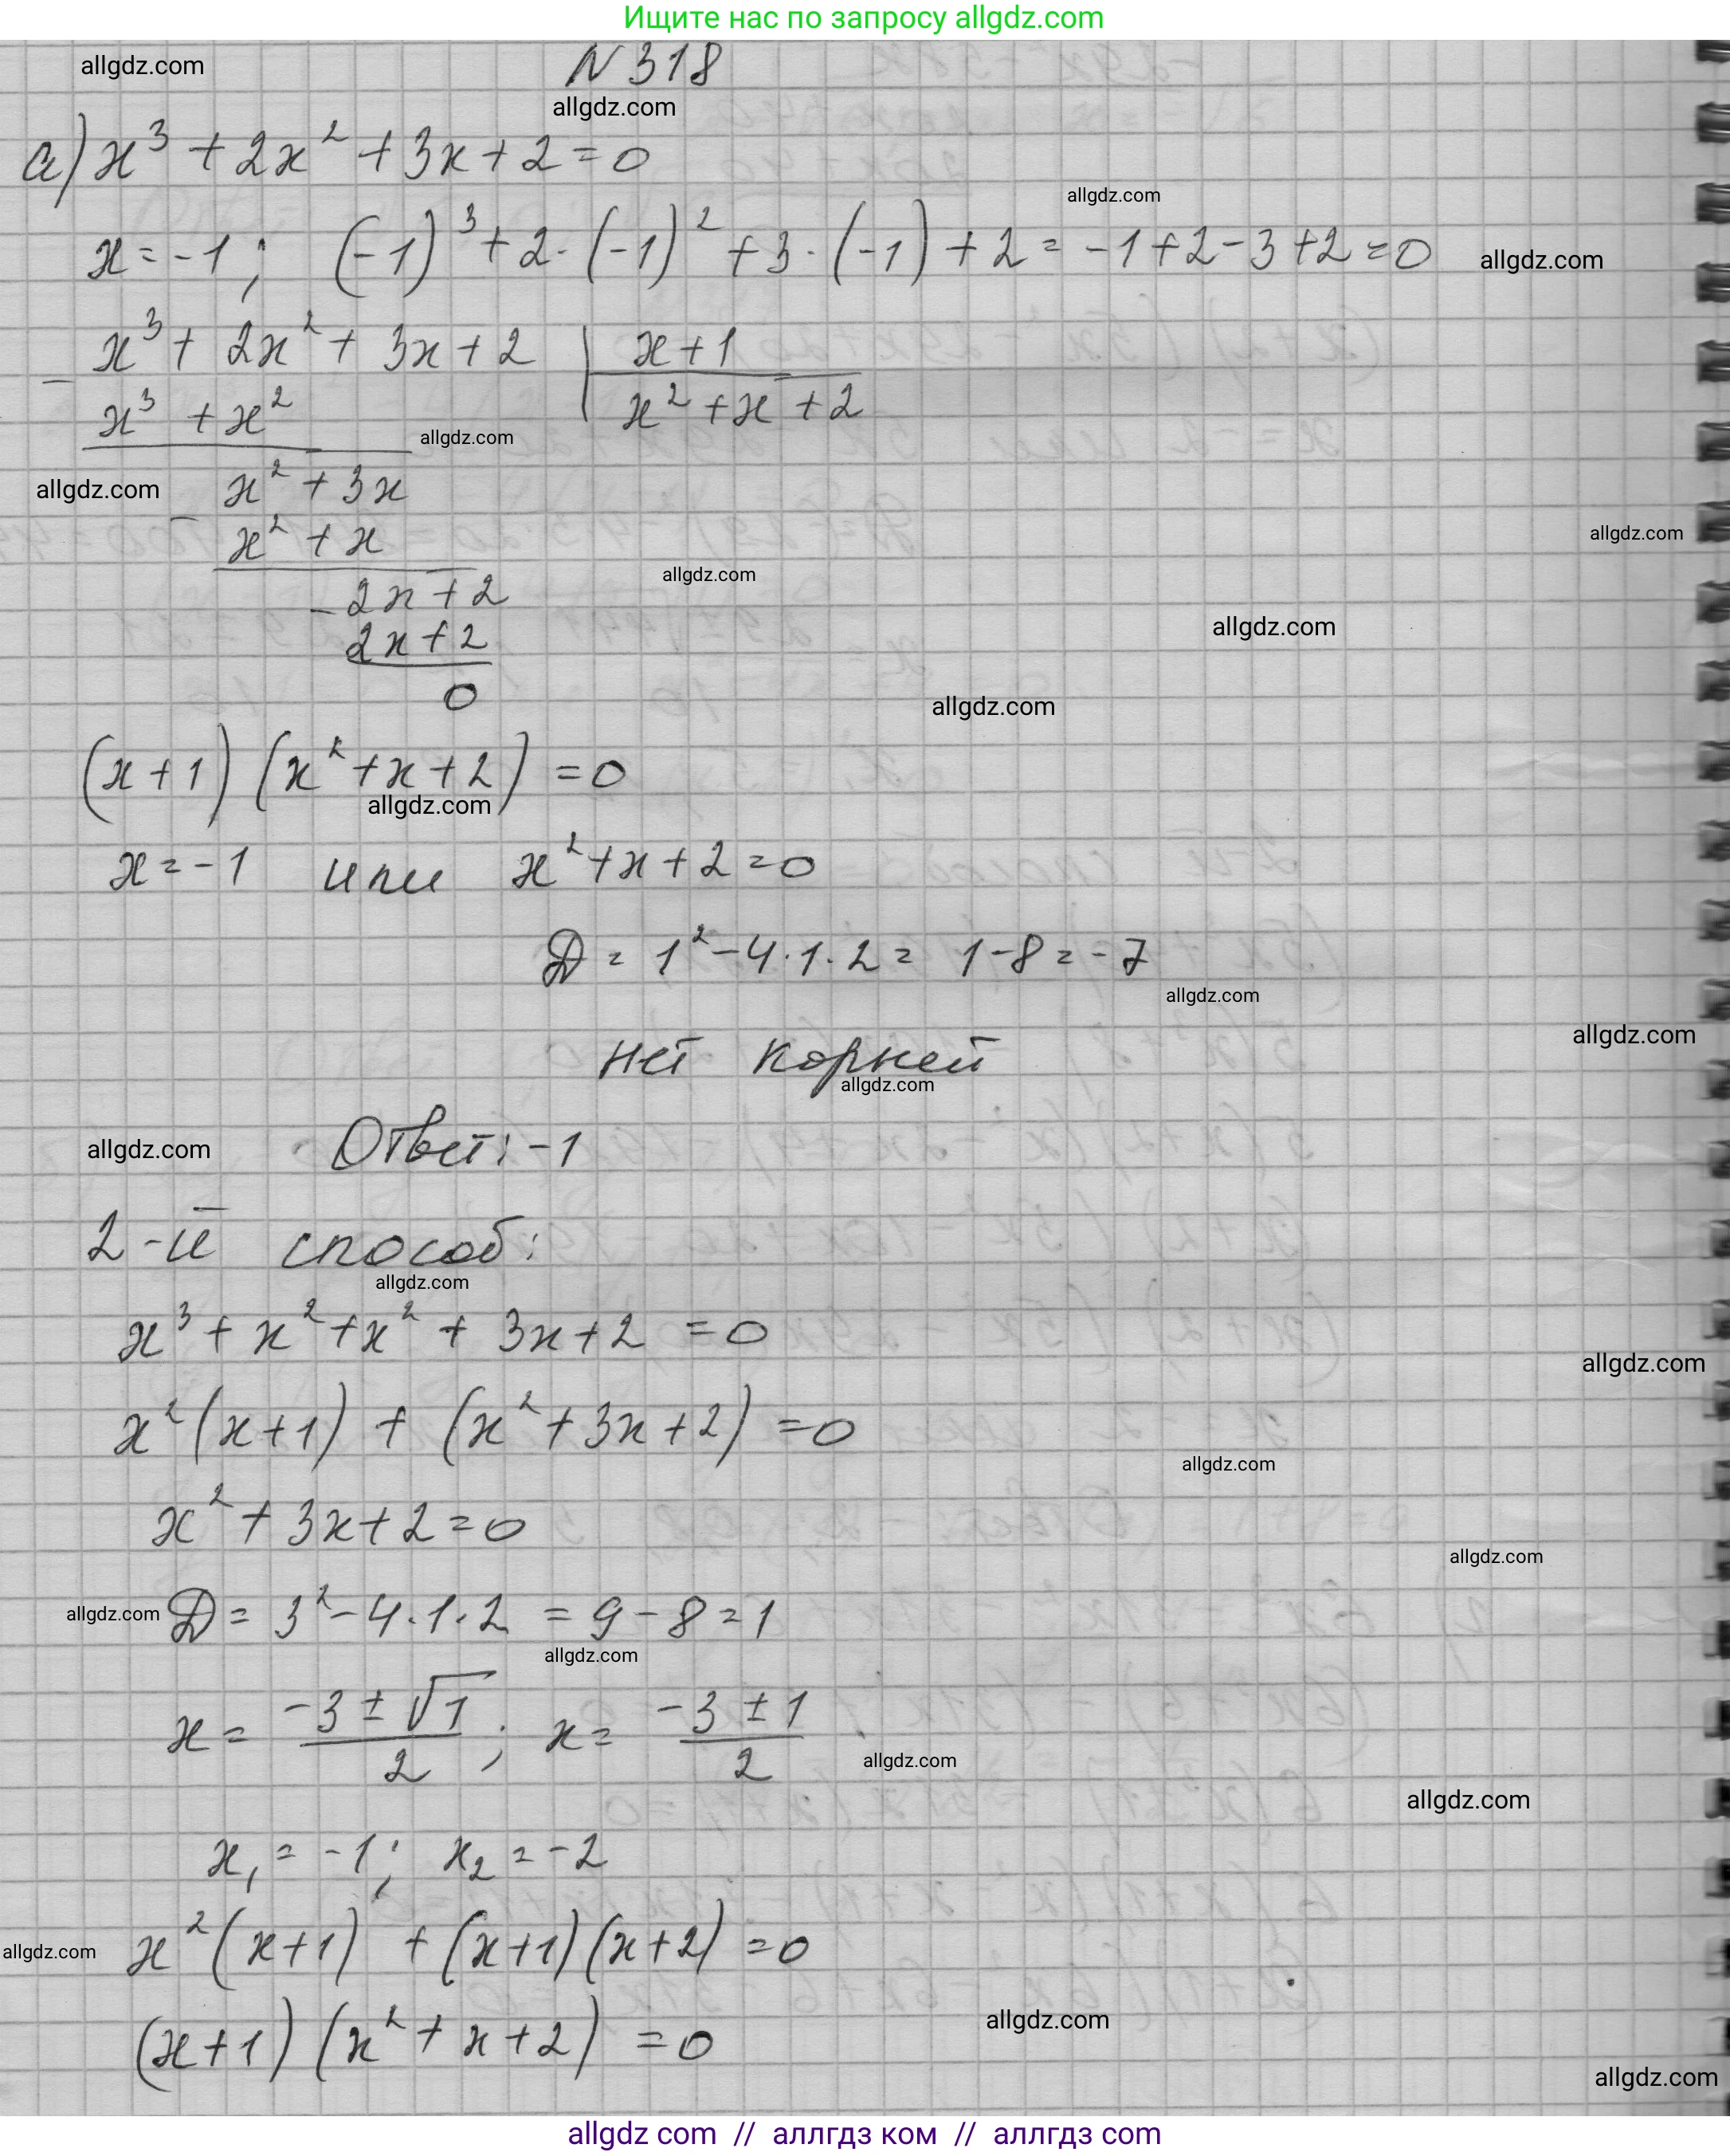 Ищите нас по запросу allgdz.com
allgdz.com
N 318
allgdz.com
а) x³ + 2x² + 3x + 2 = 0
allgdz.com
x = -1 ; (-1)³ + 2·(-1)² + 3·(-1) + 2 = -1 + 2 - 3 + 2 = 0
allgdz.com
x³ + 2x² + 3x + 2 | x + 1
- x³ + x² | x² + x + 2
allgdz.com
x² + 3x
allgdz.com
- x² + x
allgdz.com
allgdz.com
- 2x + 2
2x + 2
allgdz.com
0
allgdz.com
(x + 1) (x² + x + 2) = 0
allgdz.com
x = -1 или x² + x + 2 = 0
Д = 1² - 4·1·2 = 1 - 8 = -7
allgdz.com
allgdz.com
нет корней
allgdz.com
allgdz.com
Ответ: -1
2-й способ:
allgdz.com
x³ + x² + x² + 3x + 2 = 0
allgdz.com
x² (x + 1) + (x² + 3x + 2) = 0
allgdz.com
x² + 3x + 2 = 0
allgdz.com
allgdz.com
Д = 3² - 4·1·2 = 9 - 8 = 1
allgdz.com
x = (-3 ± √1)/2 ; x = (-3 ± 1)/2
allgdz.com
allgdz.com
x₁ = -1 ; x₂ = -2
allgdz.com
x² (x + 1) + (x + 1) (x + 2) = 0
allgdz.com
(x + 1) (x² + x + 2) = 0
allgdz.com
allgdz com // аллгдз ком // аллгдз com